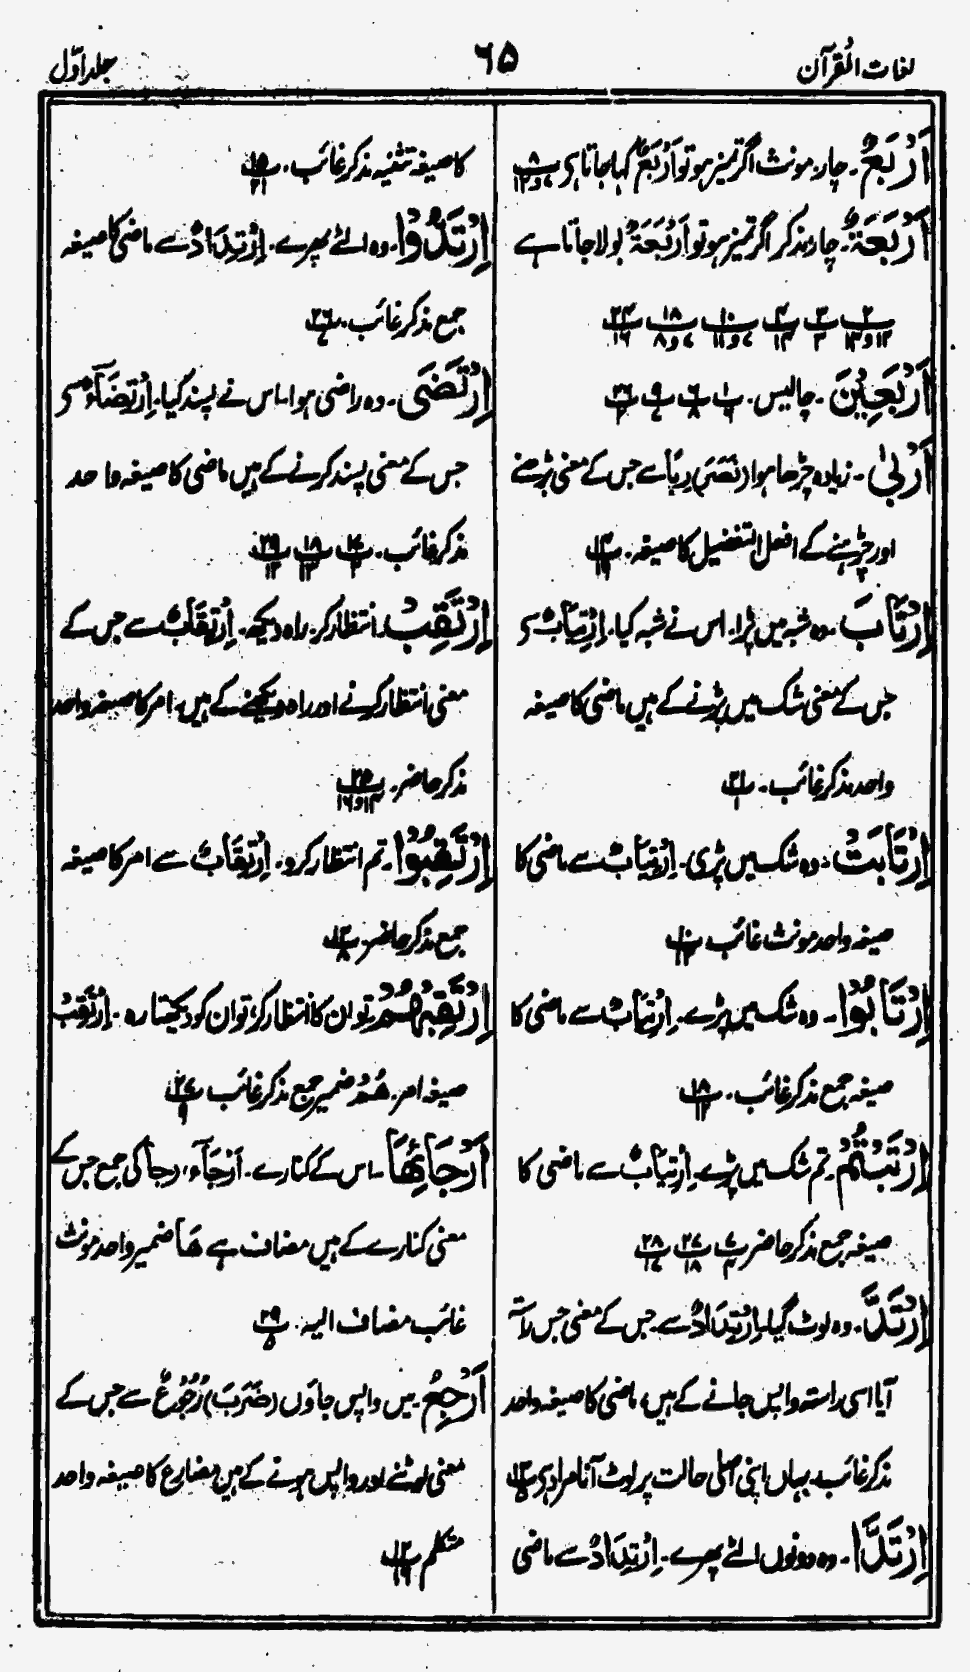 لغات القرآن
۶۵
جلد اوّل
اَرْبَعٌ۔ چار۔ مونث اگر تمیز ہو تو اَرْبَعٌ کہا جاتا ہی پ ۸ ۲ و ۱۲
اَرْبَعَةٌ۔ چار۔ مذکر اگر تمیز ہو تو اَرْبَعَةٌ بولا جاتا ہے
پ ۲ ۱۲ و ۱۴ پ ۳ ۳ پ ۴ ۱۴ پ ۱۰ ۷ و ۱۱ پ ۱۸ ۷ و ۸ پ ۲۴ ۱۶
اَرْبَعِيْنَ۔ چالیس۔ پ ۱ ۶ پ ۶ ۸ پ ۹ ۷ پ ۲۶ ۲
اَرْبٰى۔ زیادہ چڑھا ہوا (نَصَرَ) رِبًا سے جس کے معنی بڑھنے
اور چڑہنے کے افعل التفضیل کا صیغہ۔ پ ۱۴ ۱۹
اِرْتَابَ۔ وہ شبہ میں پڑا۔ اس نے شبہ کیا۔ اِرْتِيَابٌ سے
جس کے معنی شک میں پڑنے کے ہیں ماضی کا صیغہ
واحد مذکر غائب۔ پ ۲۱ ۱
اِرْتَابَتْ۔ وہ شک میں پڑی۔ اِرْتِيَابٌ سے ماضی کا
صیغہ واحد مونث غائب پ ۱۰ ۱۳
اِرْتَابُوْا۔ وہ شک میں پڑے۔ اِرْتِيَابٌ سے ماضی کا
صیغہ جمع مذکر غائب۔ پ ۱۸ ۱۲
اِرْتَبْتُمْ۔ تم شک میں پڑے۔ اِرْتِيَابٌ سے ماضی کا
صیغہ جمع مذکر حاضر پ ۷ ۴ پ ۲۷ ۱۸ پ ۲۸ ۱۷
اِرْتَدَّ۔ وہ لوٹ گیا۔ اِرْتِدَادٌ سے۔ جس کے معنی جس راستہ
آیا اسی راستہ واپس جانے کے ہیں، ماضی کا صیغہ واحد
مذکر غائب۔ یہاں اپنی اصلی حالت پر لوٹ آنا مراد ہی پ ۱۳ ۵
اِرْتَدَّا۔ وہ دونوں الٹے پھرے۔ اِرْتِدَادٌ سے ماضی
کا صیغہ تثنیہ مذکر غائب۔ پ ۱۵ ۲۱
اِرْتَدُّوْا۔ وہ الٹے پھرے۔ اِرْتِدَادٌ سے ماضی کا صیغہ
جمع مذکر غائب۔ پ ۲۶ ۷
اِرْتَضٰى۔ وہ راضی ہوا۔ اس نے پسند کیا۔ اِرْتِضَآءٌ سے
جس کے معنی پسند کرنے کے ہیں ماضی کا صیغہ واحد
مذکر غائب۔ پ ۱۷ ۲ پ ۱۸ ۱۳ پ ۲۹ ۱۲
اِرْتَقِبْ۔ انتظار کر۔ راہ دیکھ۔ اِرْتِقَابٌ سے جس کے
معنی انتظار کرنے اور راہ دیکھنے کے ہیں۔ امر کا صیغہ واحد
مذکر حاضر۔ پ ۲۵ ۱۴ و ۱۶
اِرْتَقِبُوْا۔ تم انتظار کرو۔ اِرْتِقَابٌ سے امر کا صیغہ
جمع مذکر حاضر۔ پ ۱۲ ۸
اِرْتَقِبْهُمْ تو ان کا انتظار کر، تو ان کو دیکھتا رہ۔ اِرْتَقِبْ
صیغہ امر۔ هُمْ ضمیر جمع مذکر غائب پ ۲۷ ۹
اَرْجَآئِهَا۔ اس کے کنارے۔ اَرْجَآء، رجا کی جمع جس کے
معنی کنارے کے ہیں مضاف ہے هَا ضمیر واحد مونث
غائب مضاف الیہ۔ پ ۲۹ ۵
اَرْجِعُ۔ میں واپس جاؤں (ضَرَبَ) رُجُوْعٌ سے جس کے
معنی لوٹنے اور واپس ہونے کے ہیں مضارع کا صیغہ واحد
متکلم پ ۱۲ ۱۶